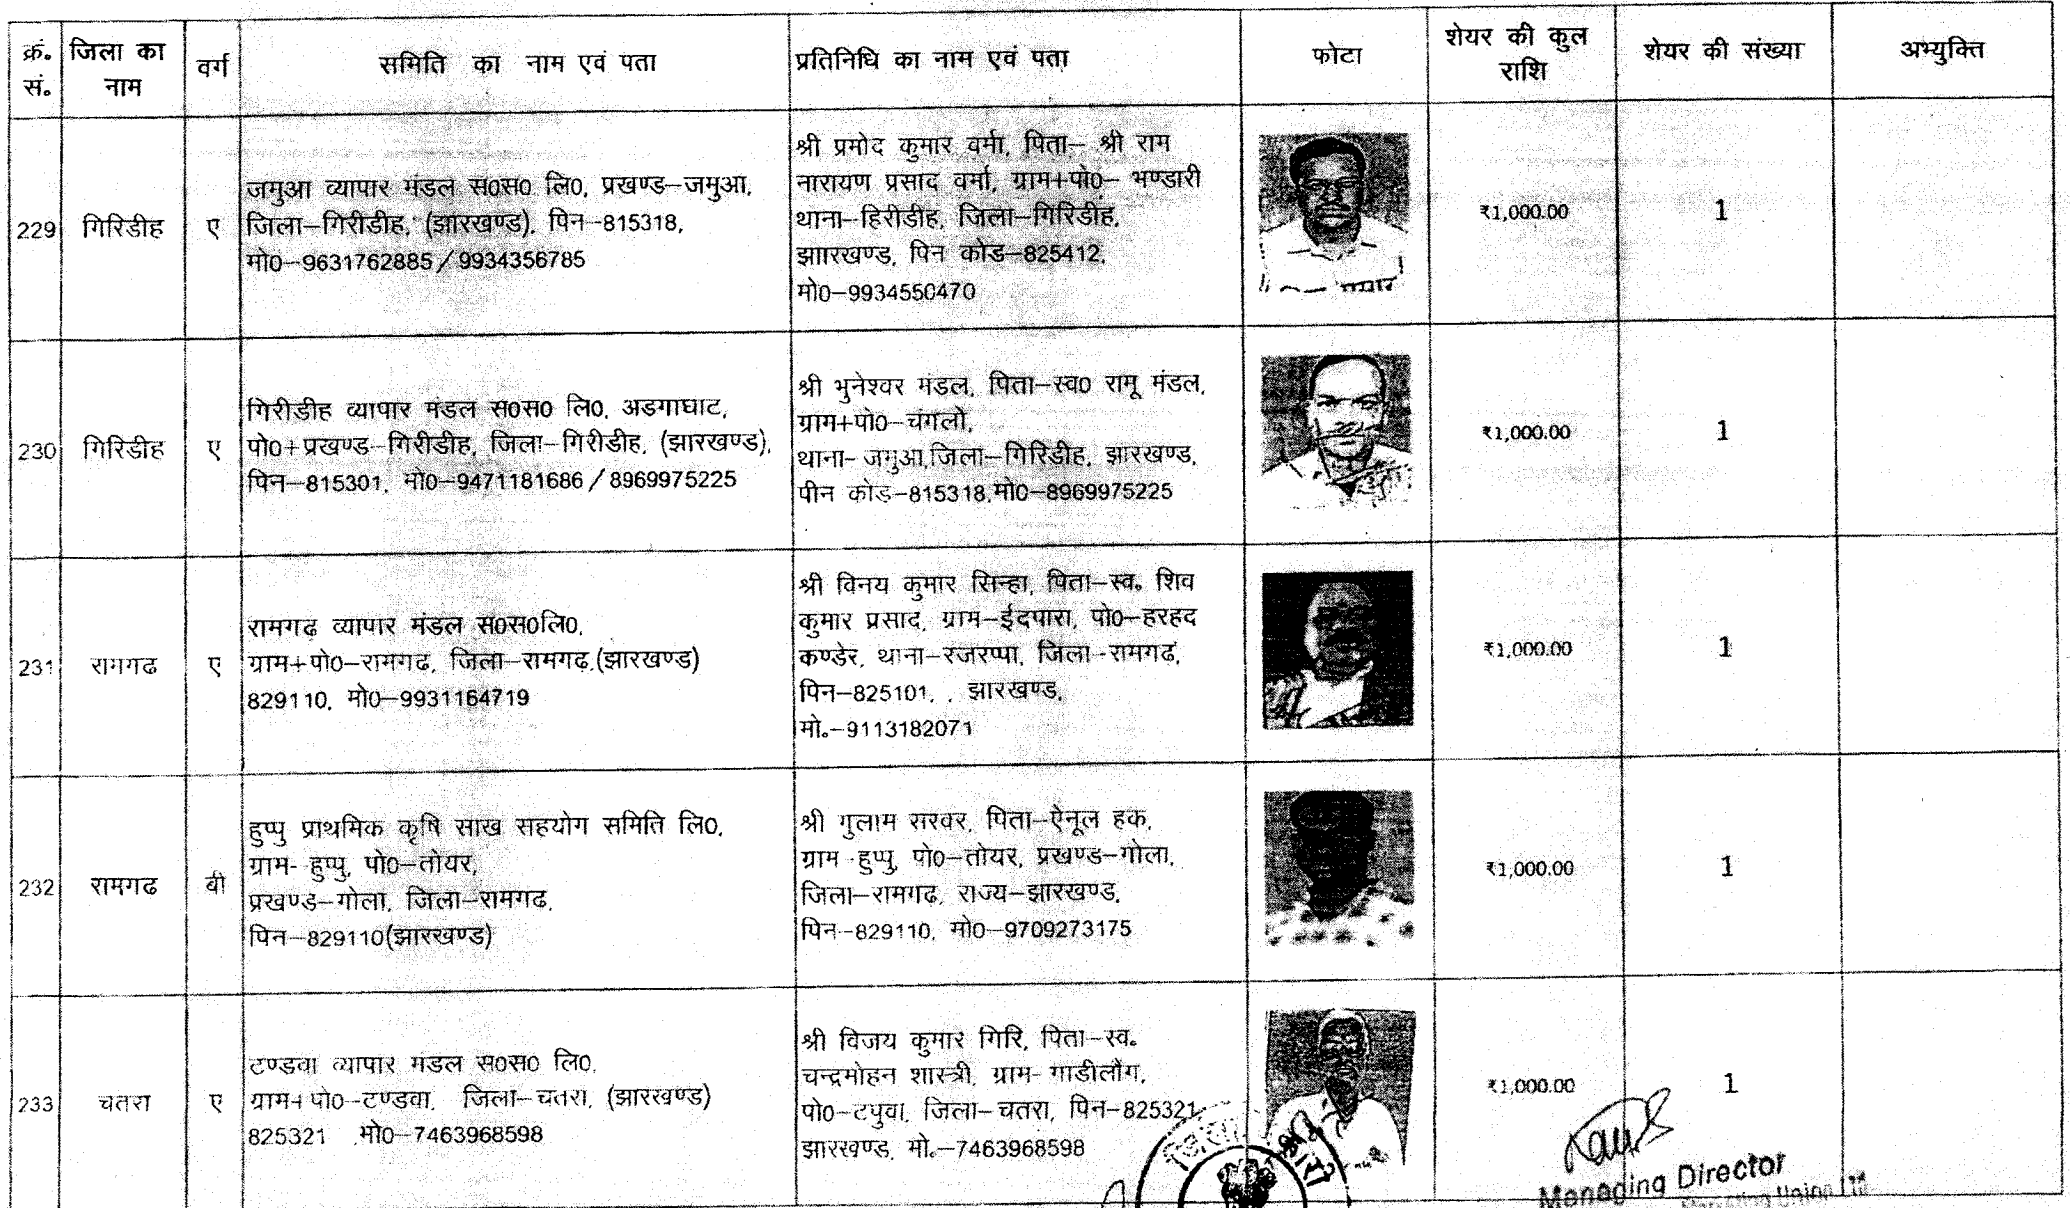 क्रं. सं. जिला का नाम वर्ग समिति का नाम एवं पता प्रतिनिधि का नाम एवं पता फोटा शेयर की कुल राशि शेयर की संख्या अभ्युक्ति
229 गिरिडीह ए
जमुआ व्यापार मंडल स0स0 लि0, प्रखण्ड–जमुआ,
जिला–गिरीडीह, (झारखण्ड), पिन–815318,
मो0–9631762885/9934356785
श्री प्रमोद कुमार वर्मा, पिता– श्री राम
नारायण प्रसाद वर्मा, ग्राम+पो0– भण्डारी
थाना–हिरीडीह, जिला–गिरिडीह,
झाारखण्ड, पिन कोड–825412,
मो0–9934550470
₹1,000.00 1
230 गिरिडीह ए
गिरीडीह व्यापार मंडल स0स0 लि0, अडगाघाट,
पो0+प्रखण्ड–गिरीडीह, जिला–गिरीडीह, (झारखण्ड),
पिन–815301, मो0–9471181686/8969975225
श्री भुनेश्वर मंडल, पिता–स्व0 रामू मंडल,
ग्राम+पो0–चंगलो,
थाना–जमुआ,जिला–गिरिडीह, झारखण्ड,
पीन कोड–815318,मो0–8969975225
₹1,000.00 1
231 रामगढ ए
रामगढ व्यापार मंडल स0स0लि0,
ग्राम+पो0–रामगढ, जिला–रामगढ,(झारखण्ड)
829110, मो0–9931164719
श्री विनय कुमार सिन्हा, पिता–स्व. शिव
कुमार प्रसाद, ग्राम–ईदपारा, पो0–हरहद
कण्डेर, थाना–रजरप्पा, जिला–रामगढ,
पिन–825101, , झारखण्ड,
मो.–9113182071
₹1,000.00 1
232 रामगढ बी
हुप्पु प्राथमिक कृषि साख सहयोग समिति लि0,
ग्राम- हुप्पु, पो0–तोयर,
प्रखण्ड–गोला, जिला–रामगढ,
पिन–829110(झारखण्ड)
श्री गुलाम सरवर, पिता–ऐनूल हक,
ग्राम -हुप्पु, पो0–तोयर, प्रखण्ड–गोला,
जिला–रामगढ, राज्य–झारखण्ड,
पिन–829110, मो0–9709273175
₹1,000.00 1
233 चतरा ए
टण्डवा व्यापार मंडल स0स0 लि0,
ग्राम+पो0–टण्डवा, जिला–चतरा, (झारखण्ड)
825321 ,मो0–7463968598
श्री विजय कुमार गिरि, पिता–स्व.
चन्द्रमोहन शास्त्री, ग्राम- गाडीलौंग,
पो0–टपुवा, जिला–चतरा, पिन–825321,
झारखण्ड, मो.–7463968598
₹1,000.00 1
Managing Director